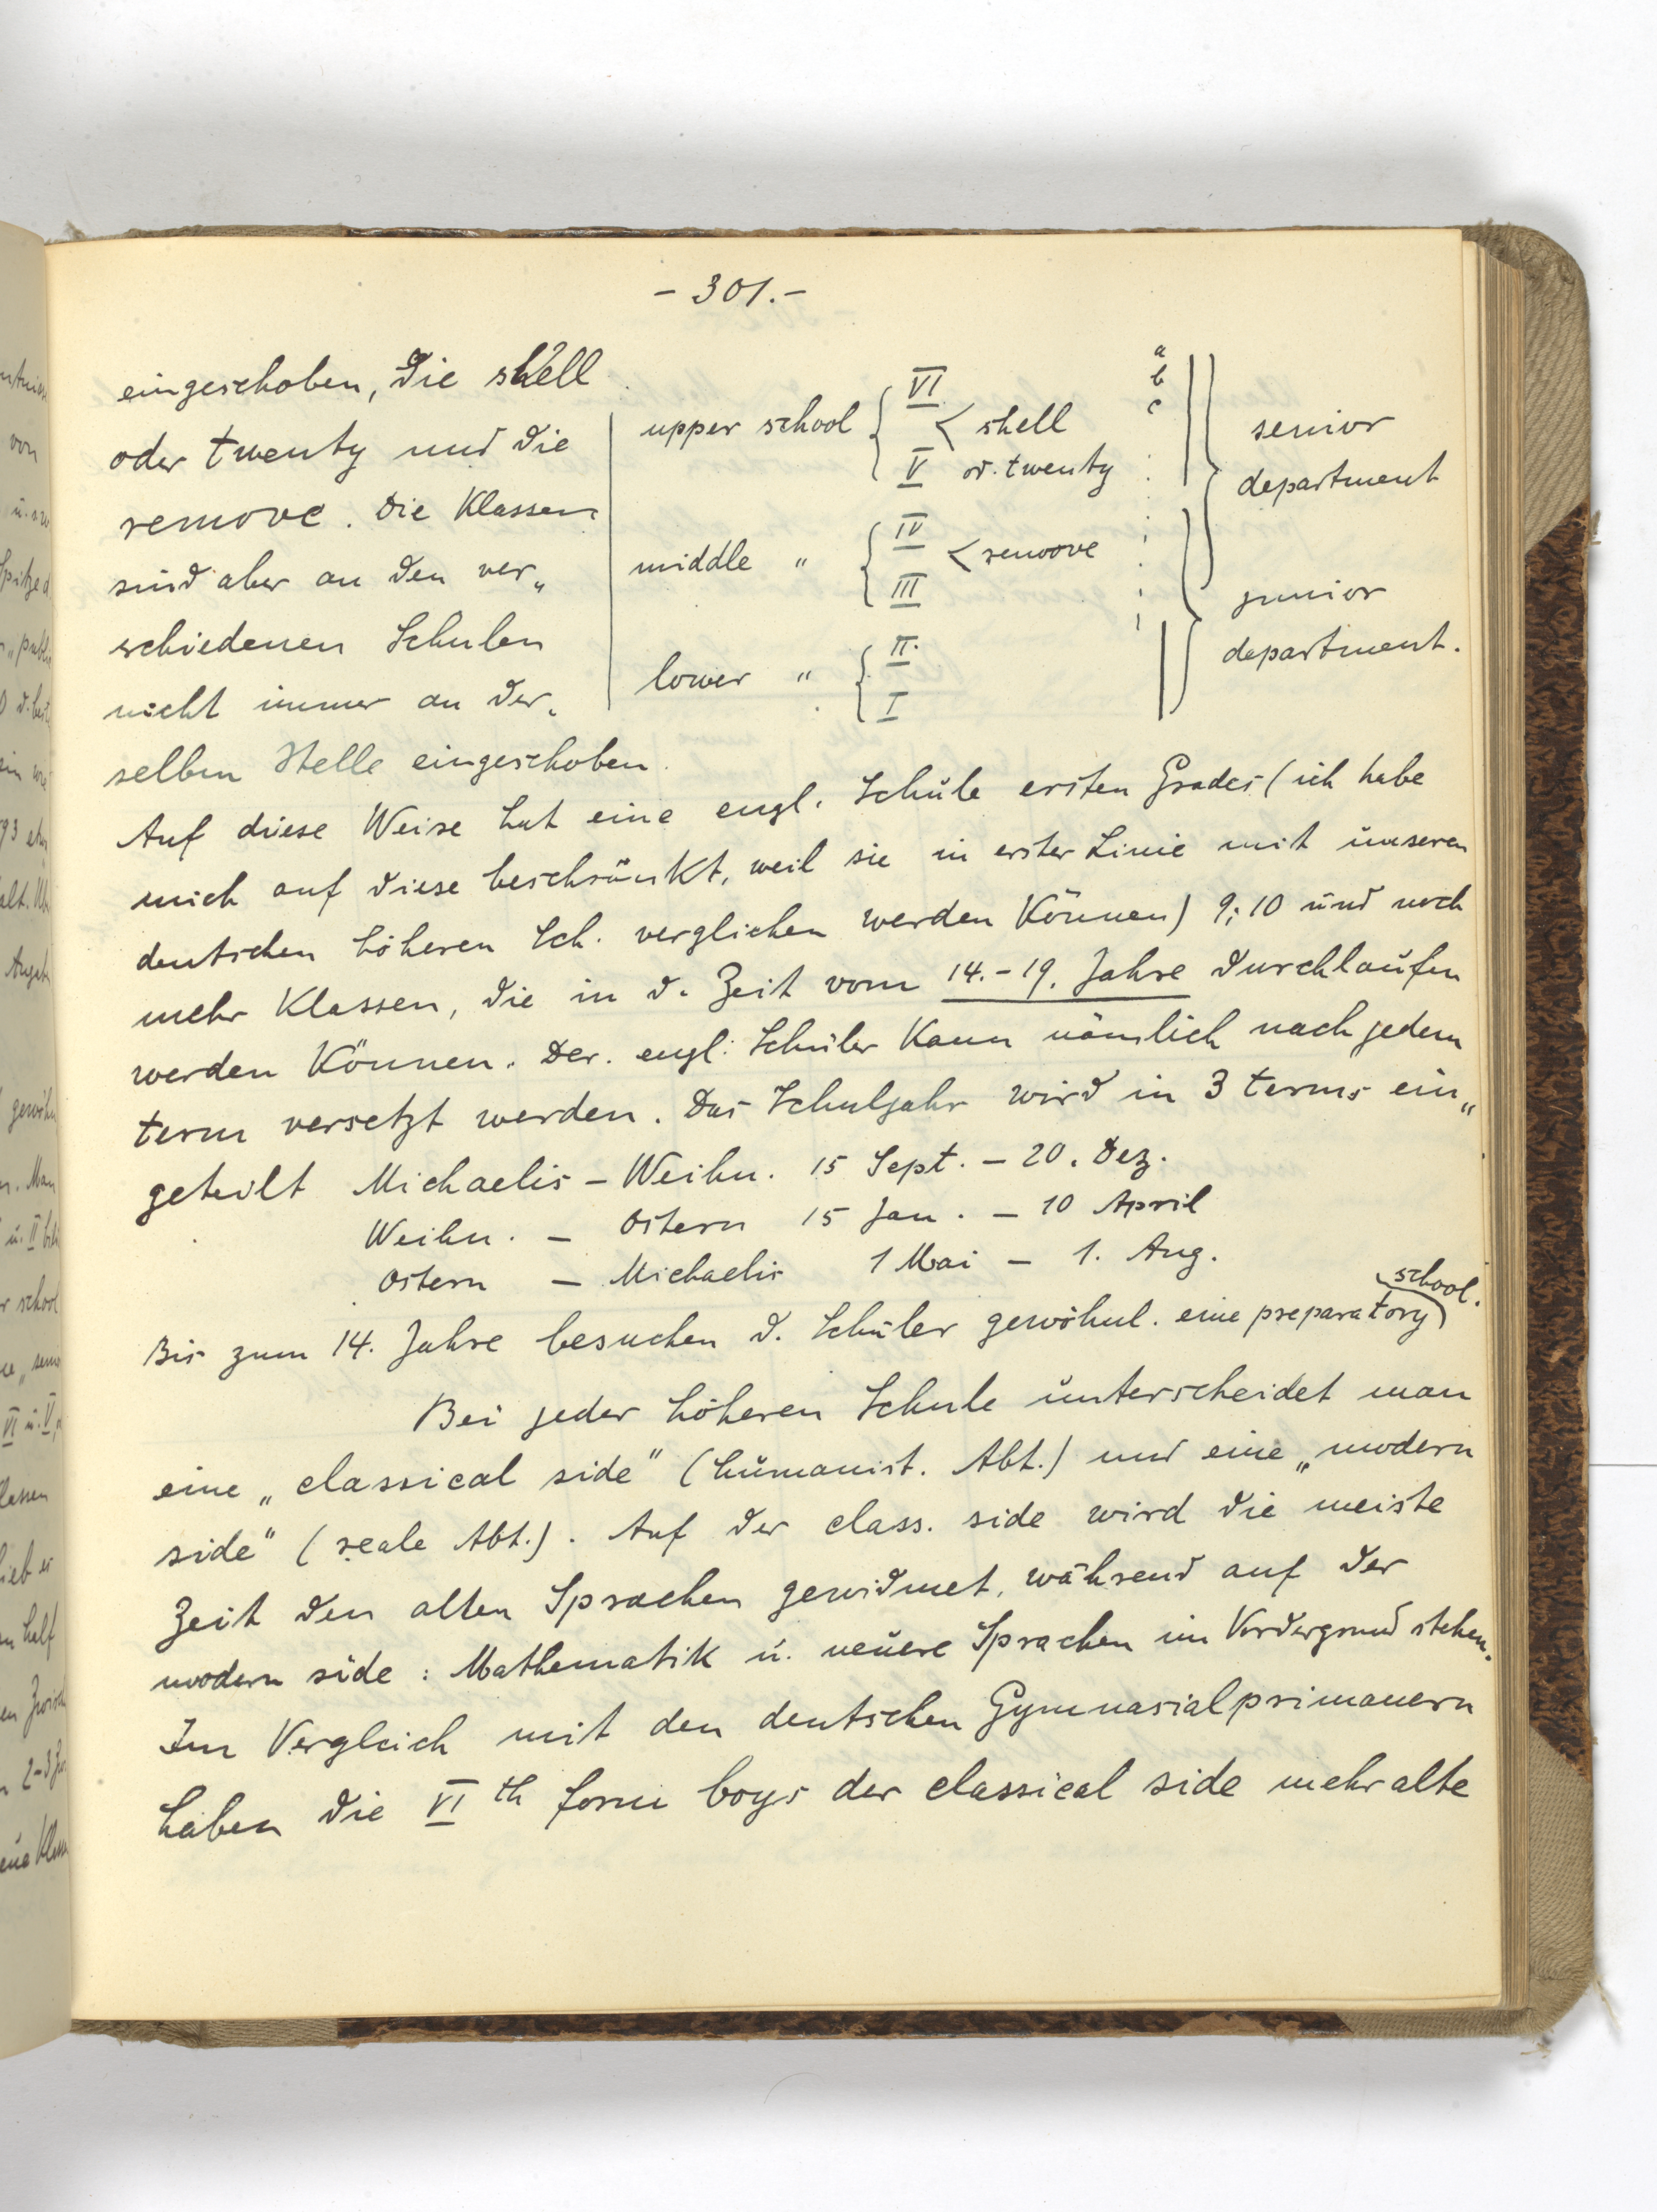 - 301. -
eingeschoben, die shell
oder twenty und die
remove. Die Klassen
sind aber an den ver„
schiedenen Schulen
nicht immer an der„
selben Stelle eingeschoben.
upper school { VI
V < shell
od. twenty
a
b
c
senior
department
middle " { IV
III < remove
junior
department.
lower " { II.
I
Auf diese Weise hat eine engl. Schule ersten Grades (ich habe
mich auf diese beschränkt, weil sie in erster Linie mit unseren
deutschen höheren Sch. verglichen werden können) 9; 10 und noch
mehr Klassen, die in d. Zeit vom 14. - 19. Jahre durchlaufen
werden können. Der engl. Schüler kann nämlich nach jedem
term versetzt werden. Das Schuljahr wird in 3 terms ein„
geteilt Michaelis - Weihn. 15 Sept. - 20. Dez.
Weihn. - Ostern 15 Jan. - 10 April
Ostern - Michaelis 1 Mai - 1. Aug.
Bis zum 14. Jahre besuchen d. Schüler gewöhnl. eine preparatory school.
Bei jeder höheren Schule unterscheidet man
eine „classical side" (humanist. Abt.) und eine „modern
side" (reale Abt.). Auf der class. side wird die meiste
Zeit den alten Sprachen gewidmet, während auf der
modern side : Mathematik u. neuere Sprachen im Vordergrund stehen.
Im Vergleich mit den deutschen Gymnasialprimanern
haben die VI th form boys der classical side mehr alte